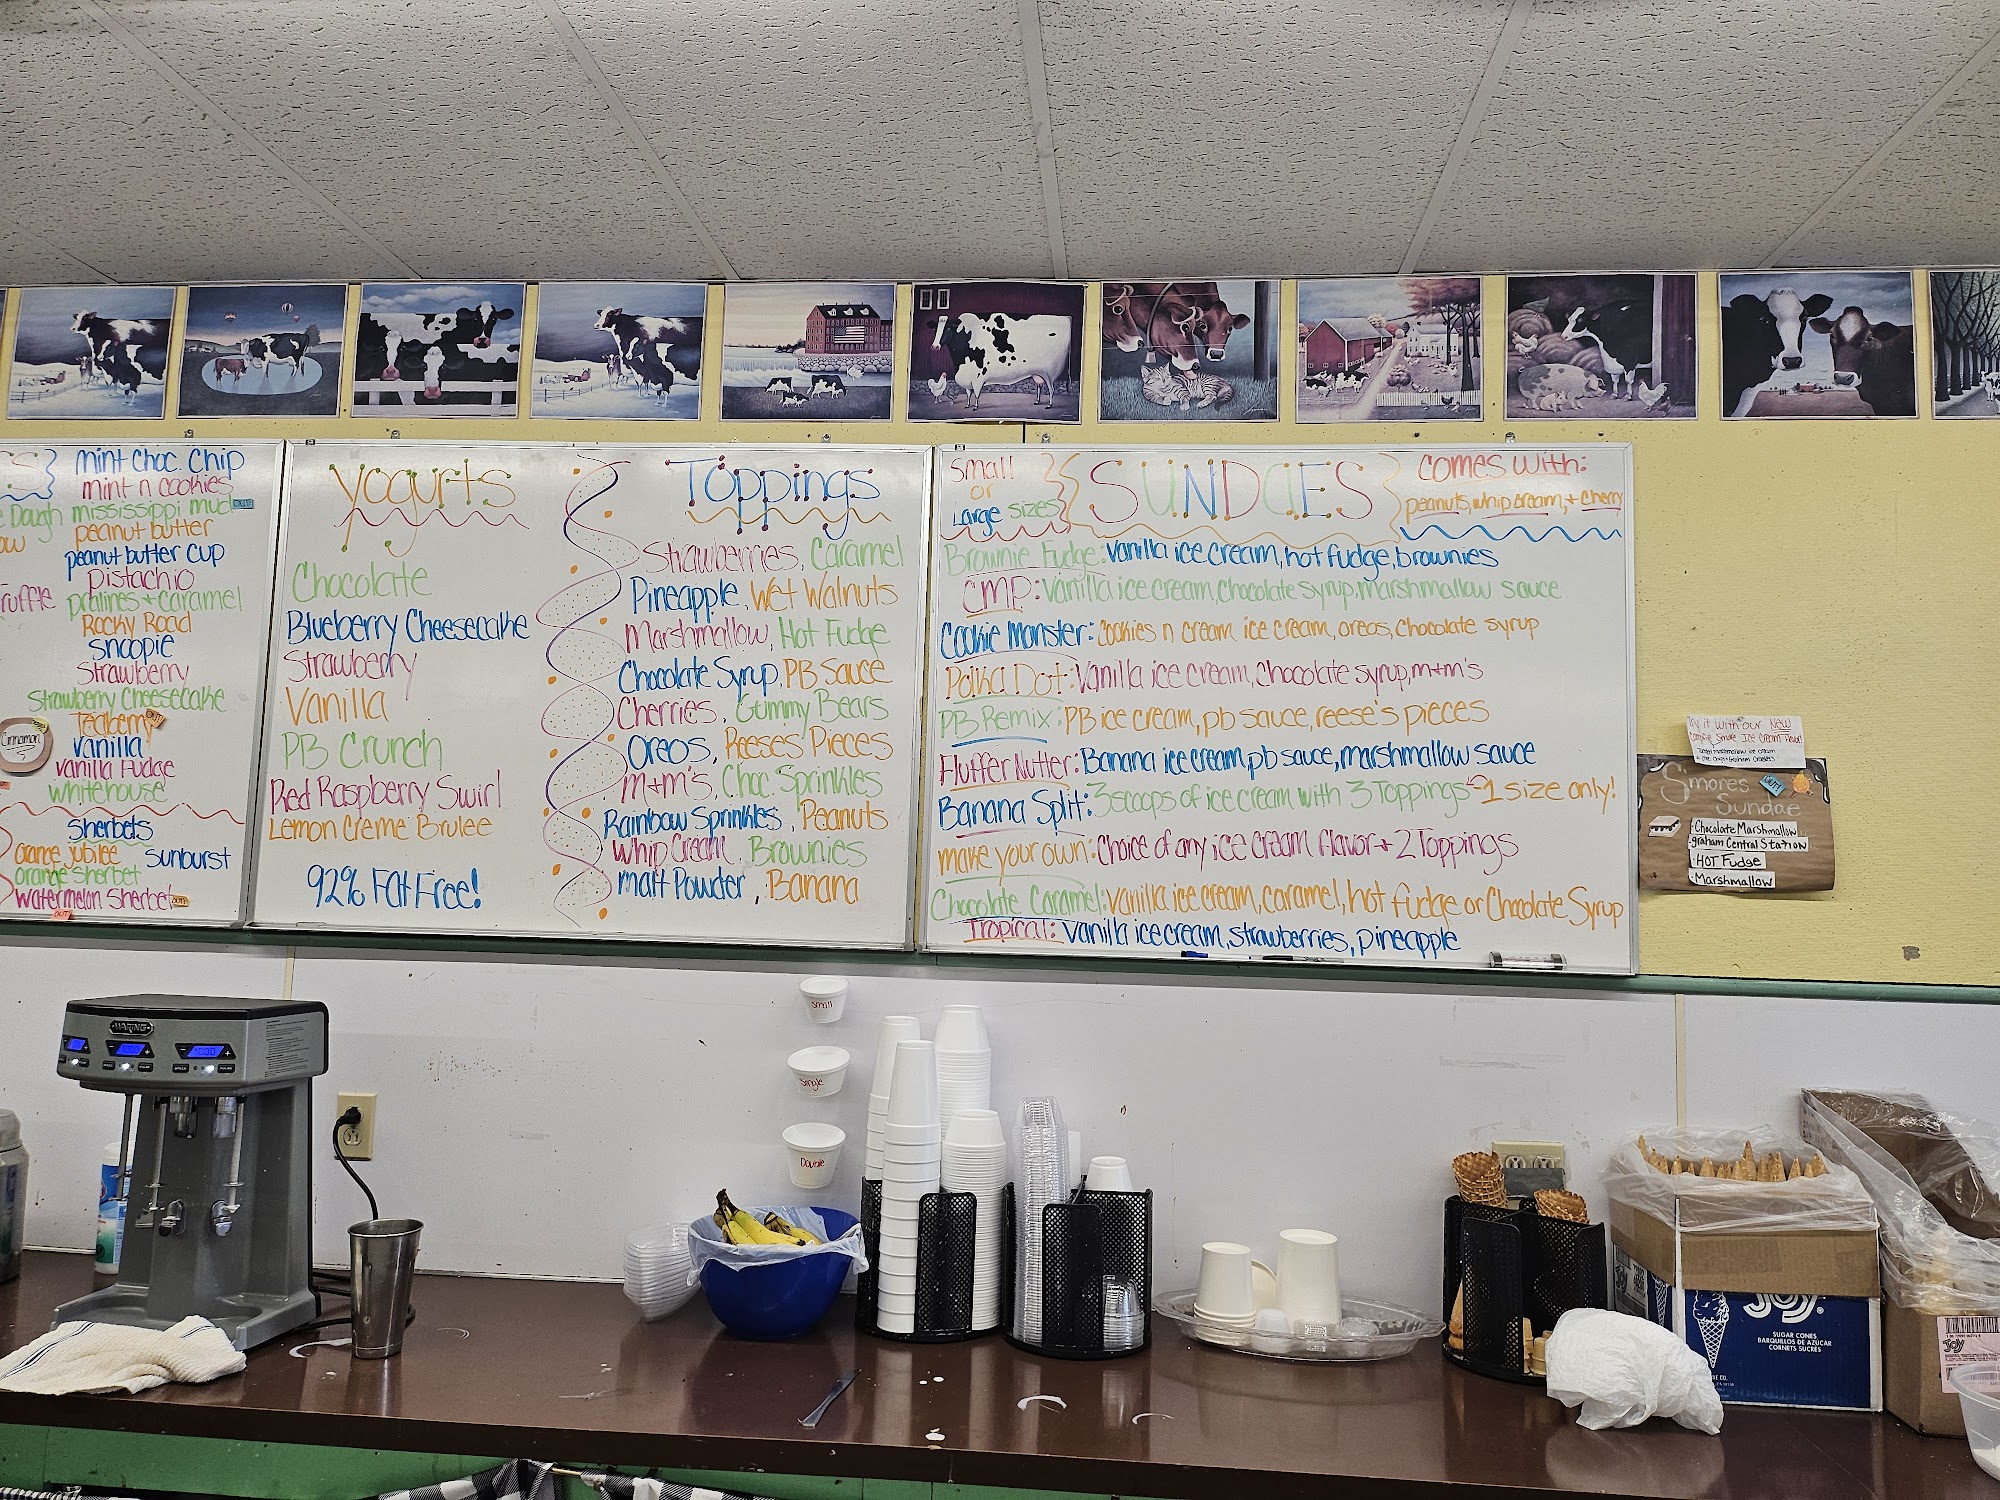 mint choc. chip
mint n cookies
Dough mississippi mud OUT!
peanut butter
peanut butter cup
pistachio
pralines + caramel
Rocky Road
snoopie
Strawberry
Strawberry Cheesecake
Teaberry OUT!
Cinnamon
vanilla
vanilla fudge
whitehouse
Sherbets
orange jubilee
Sunburst
orange sherbet
watermelon sherbet OUT!
OUT!
yogurts
Chocolate
Blueberry Cheesecake
Strawberry
Vanilla
PB Crunch
Red Raspberry Swirl
Lemon Creme Brulee
92% Fat Free!
Toppings
Strawberries, Caramel
Pineapple, Wet Walnuts
Marshmallow, Hot Fudge
Chocolate Syrup, PB Sauce
Cherries, Gummy Bears
Oreos, Reeses Pieces
m+m's, Choc Sprinkles
Rainbow Sprinkles, Peanuts
Whip Cream, Brownies
Malt Powder, Banana
Small
or
Large sizes
SUNDAES
comes with:
peanuts, whip cream, + cherry
Brownie Fudge: Vanilla ice cream, hot fudge, brownies
CMP: Vanilla ice cream, chocolate syrup, marshmallow sauce
Cookie Monster: Cookies n cream ice cream, oreos, chocolate syrup
Polka Dot: Vanilla ice cream, chocolate syrup, m+m's
PB Remix: PB ice cream, pb sauce, reese's pieces
Fluffer Nutter: Banana ice cream, pb sauce, marshmallow sauce
Banana Split: 3 scoops of ice cream with 3 Toppings 1 size only!
make your own: Choice of any ice cream flavor + 2 Toppings
Chocolate Caramel: Vanilla ice cream, caramel, hot fudge or Chocolate Syrup
Tropical: Vanilla ice cream, strawberries, pineapple
Try it with our NEW
Campfire Smore Ice Cream Flavor!
S'mores
Sundae
OUT!
·Chocolate Marshmallow
·graham Central Station
·HOT Fudge
·Marshmallow
WARING
small
Single
Double
JOY
SUGAR CONES
BARQUILLOS DE AZÚCAR
CORNETS SUCRÉS
JOY